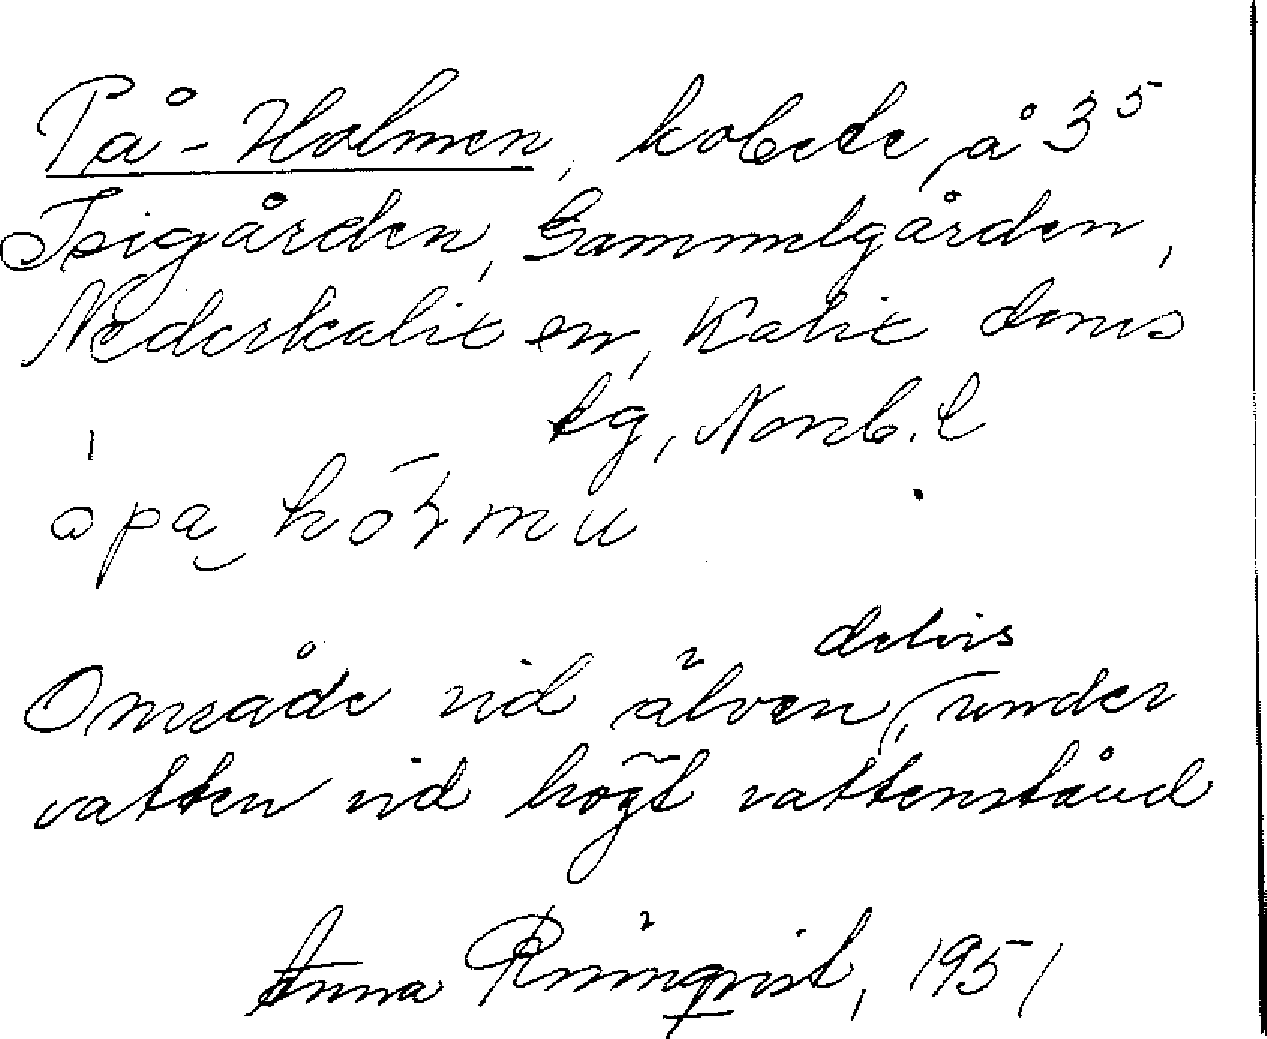 På-Holmen, kobete å 3⁵
Isigården, Gammelgården,
Nederkalix sn, Kalix doms
tg, Norrb. l
ópa hólmu
Område vid älven, delvis under
vatten vid högt vattenstånd
Anna Rönnqvist, 1951